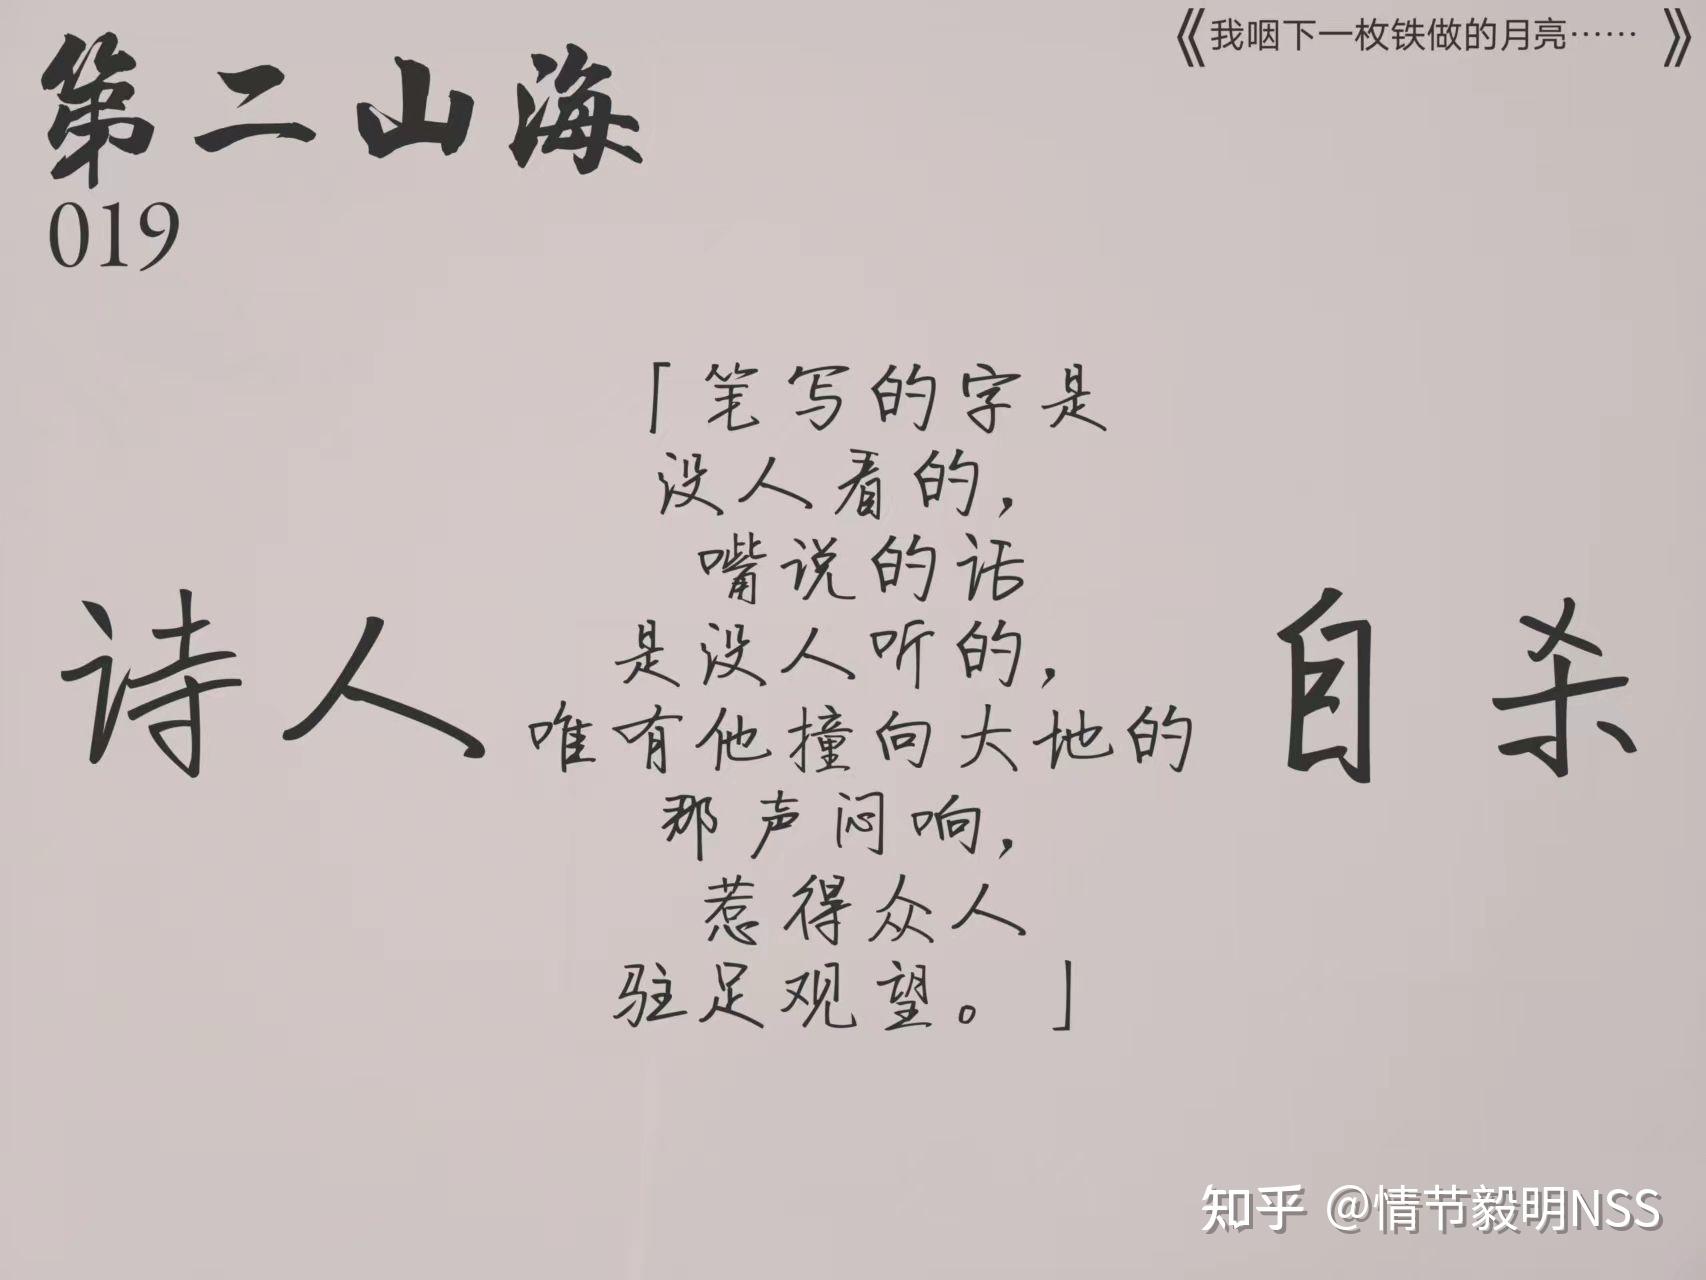 第二山海
019
《我咽下一枚铁做的月亮……》
诗人
「笔写的字是
没人看的，
嘴说的话
是没人听的，
唯有他撞向大地的
那声闷响，
惹得众人
驻足观望。」
自杀
知乎 @情节毅明NSS